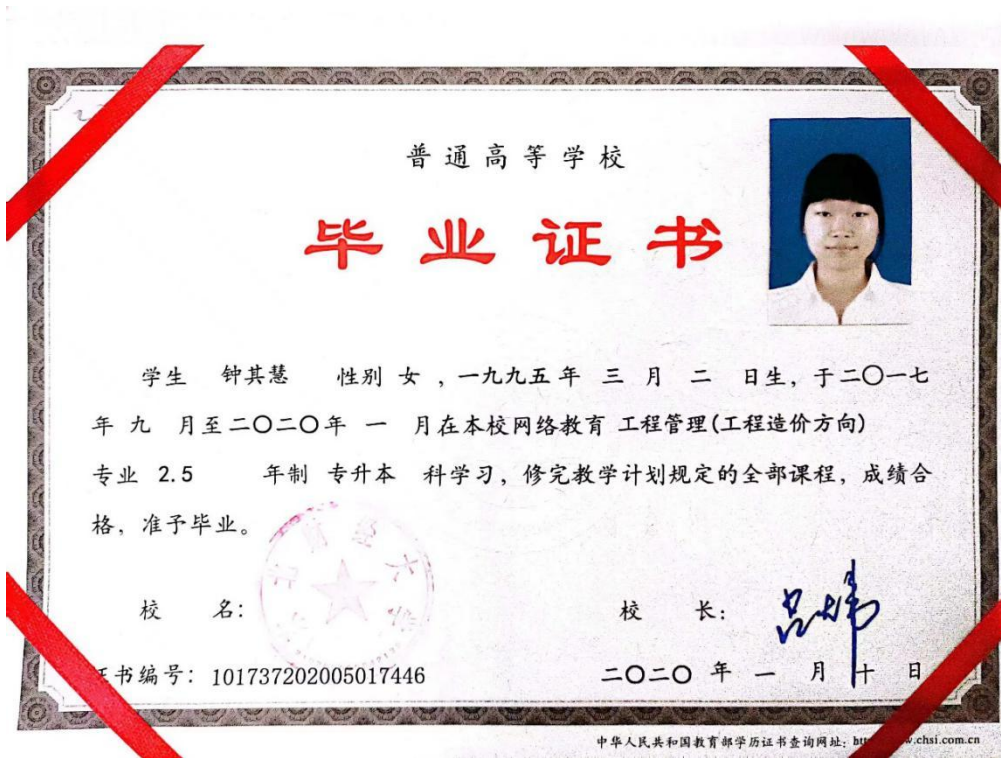 普通高等学校
毕业证书
学生 钟其慧 性别 女 ，一九九五年 三 月 二 日生，于二〇一七
年 九 月至二〇二〇年 一 月在本校网络教育 工程管理(工程造价方向)
专业 2.5 年制 专升本 科学习，修完教学计划规定的全部课程，成绩合
格，准予毕业。
校 名： 校 长：
书编号：101737202005017446 二〇二〇 年 一 月 十 日
中华人民共和国教育部学历证书查询网址：
chsi.com.cn